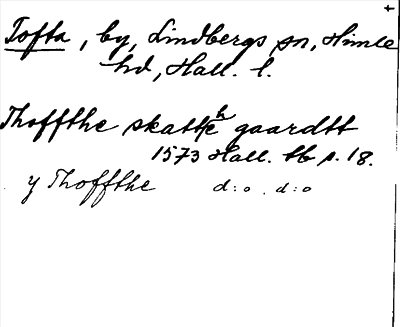 Tofta, by, Lindbergs sn, Himle
hd, Hall. l.
Thoffthe skatthe gaardtt
1573 Hall. tb s. 18.
y Thoffthe d:o. d:o